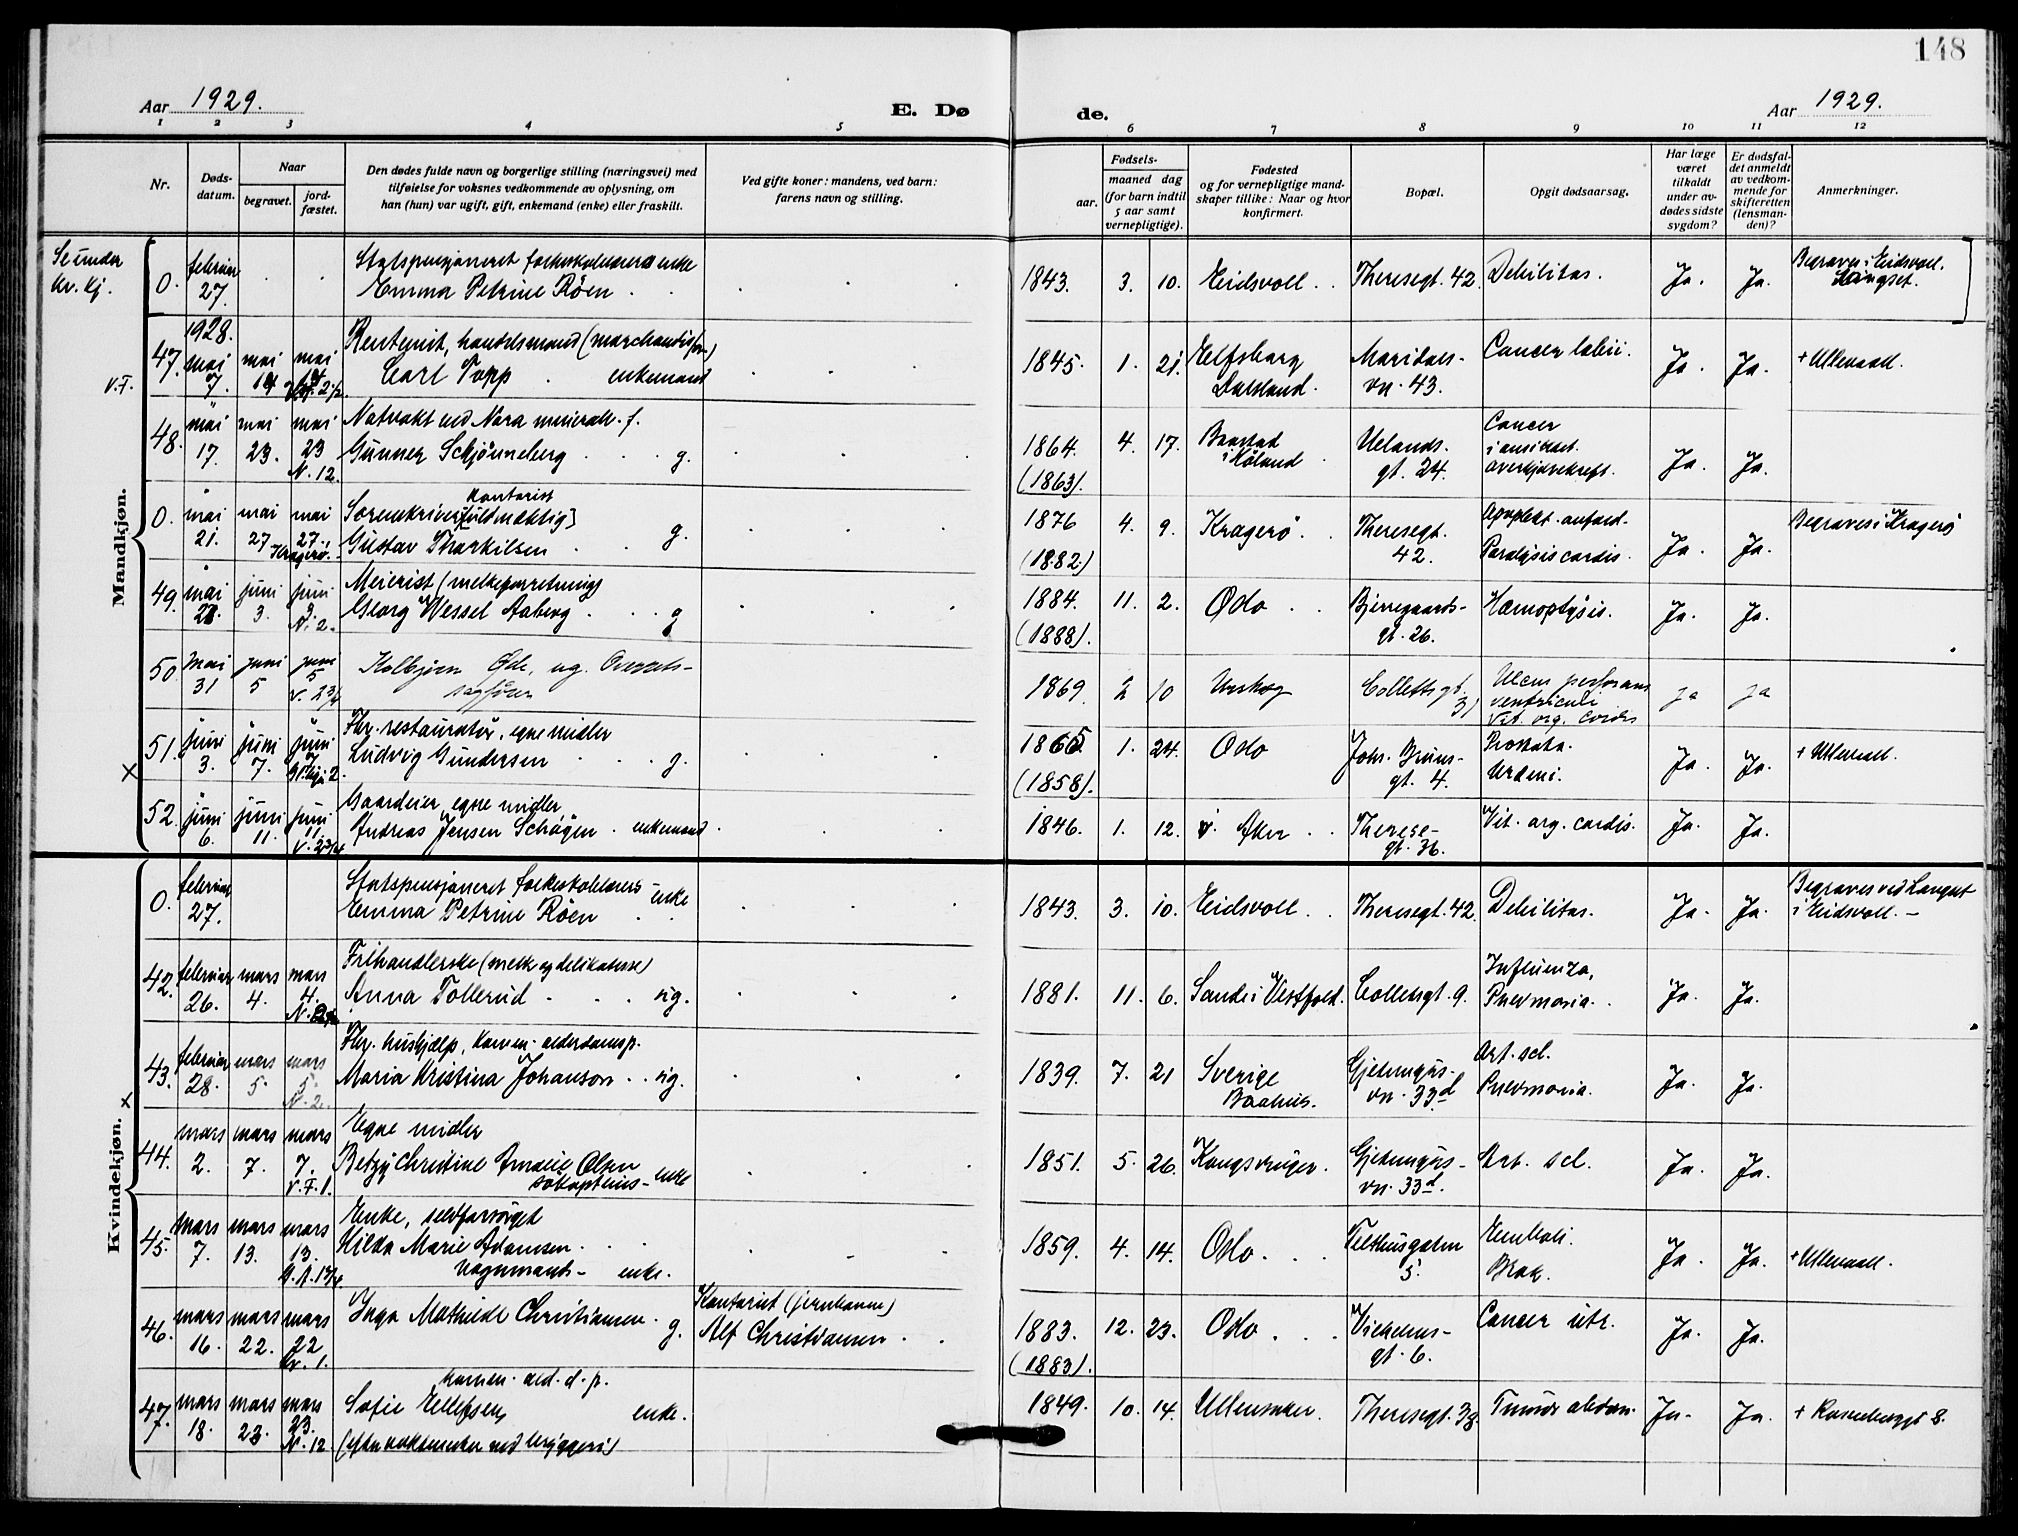 148
Aar 1929.
E. Dø
de.
Aar 1929.
1 2 3 4 5 6 7 8 9 10 11 12
Nr.
Døds-
datum.
Naar
begravet.
jord-
fæstet.
Den dødes fulde navn og borgerlige stilling (næringsvei) med
tilføielse for voksnes vedkommende av oplysning, om
han (hun) var ugift, gift, enkemand (enke) eller fraskilt.
Ved gifte koner: mandens, ved barn:
farens navn og stilling.
Fødsels-
aar.
maaned dag
(for barn indtil
5 aar samt
vernepligtige).
Fødested
og for vernepligtige mand-
skaper tillike: Naar og hvor
konfirmert.
Bopæl.
Opgit dødsaarsag.
Har læge
været
tilkaldt
under av-
dødes sidste
sygdom?
Er dødsfal-
det anmeldt
av vedkom-
mende for
skifteretten
(lensman-
den)?
Anmerkninger.
Mandkjøn.
Se under
Kv. Kj.
0. februar 27. Statspensjoneret folkeskolelærers enke
Emma Petrine Röen
1843. 3. 10. Eidsvoll. Theresegt. 42. Debilitas. Ja. Ja. Begraves i Eidsvoll.
Langset.
V.F.
47. 1928. mai 7. mai 14 mai 14 Rentenist, handelsmand
Carl Topp enkemand
1845. 1. 21. Elfsborg Dalsland. Maridals-
vn. 43. Cancer labii. Ja. Ja. + Ullevaal.
48. mai 17. mai 23. mai 23 N. 12. Natvakt ved Nora mineralv. f.
Gunner Schjönneberg g.
1864. (1863). 4. 17. Baastad i Höland Uelands.
gt. 24. Cancer
Ja. Ja.
0. mai 21. mai 27 mai 27. Kragerø. kontorist
Sorenskriverfuldmektig
Gustav Thorkilsen g.
1876 (1882.) 4. 9. Kragerö. Theresegt.
42. Apoplekt. anfald.
Paralysis cordis. Ja. Ja. Begraves i Kragerö
49. mai 28. juni 3. juni 3 N. 2. Meierist (melkeforretning)
Georg Wessel Aaberg g
1884. (1888). 11. 2. Oslo Bjerregaards-
gt. 26. Hæmoptysis. Ja. Ja.
50. mai 31 juni 5 juni 5 V. 2 3/4 Kolbjörn Öde, ug. Overrets-
sagförer
1869. 2 10 Urskog Collettsgt.
31 Ulcus perforans
ventriculi
Vit. org. Cordis ja ja
51. juni 3. juni 7. juni 7 Fhv. restauratör, egne midler
Ludvig Gundersen g.
1865 (1858). 1. 24. Oslo Joh. Bruns-
gt. 4. Prostata.
Uræmi. Ja. Ja. + Ullevaal.
52. juni 6. juni 11. juni 11. V. 2 3/4 Gaardeier, egne midler
Andreas Jensen Schøyen enkemand
1846. 1. 12. v. Aker Therese-
gt. 36. Vit. org. cordis. Ja. Ja.
Kvindekjøn.
0. februar 27. Statspensjoneret folkeskolelærers enke
Emma Petrine Röen
1843. 3. 10. Eidsvoll. Theresegt. 42. Debilitas. Ja. Ja. Begraves ved Langset
i Eidsvoll. –
42. februar 26. mars 4. mars 4. Frihandlerske (melk og delikatesse)
Anna Tollerud ug.
1881. 11. 6. Sande i Vestfold. Collettsgt. 9. Influenza,
Pnevmonia. Ja. Ja.
43. februar 28. mars 5 mars 5 N. 2. Fhv. hushjælp, kommun. alderdomsp.
Maria Kristina Johanson ug.
1839. 7. 21 Sverige
Baahus. Gjetemyrs-
vn. 33d Art. scl.
Pnevmonia. Ja. Ja.
44. mars 2. mars 7. mars 7. V. F. 1. Egne midler
Betzy Christine Amalie Olsen
sökapteins- enke
1851. 5. 26. Kongsvinger. Gjetemyrs-
vn. 33d. Art. scl. Ja. Ja.
45. mars 7. mars 13. mars 13. Enke, selvforsörget
Hilda Marie Adamsen
vognmands- enke.
1859. 4. 14. Oslo. Telthusgaten
5. Emboli.
Brok. Ja. Ja. + Ullevaal.
46. mars 16. mars 22. mars 22 Kv. 1. Inga Mathilde Christiansen. g. Kontorist (jernbanen)
Alf Christiansen
1883. (1883). 12. 23. Oslo. Vilhelms-
gt. 6. Cancer utr. Ja. Ja.
47. mars 18. mars 23. mars 23. N. 12 kommun. ald. d. p.
Sofie Ellefsen, enke.
1849. 10. 14. Ullensaker. Theresegt. 38 Tumor abdom. Ja. Ja. + Rosenborggt 8.